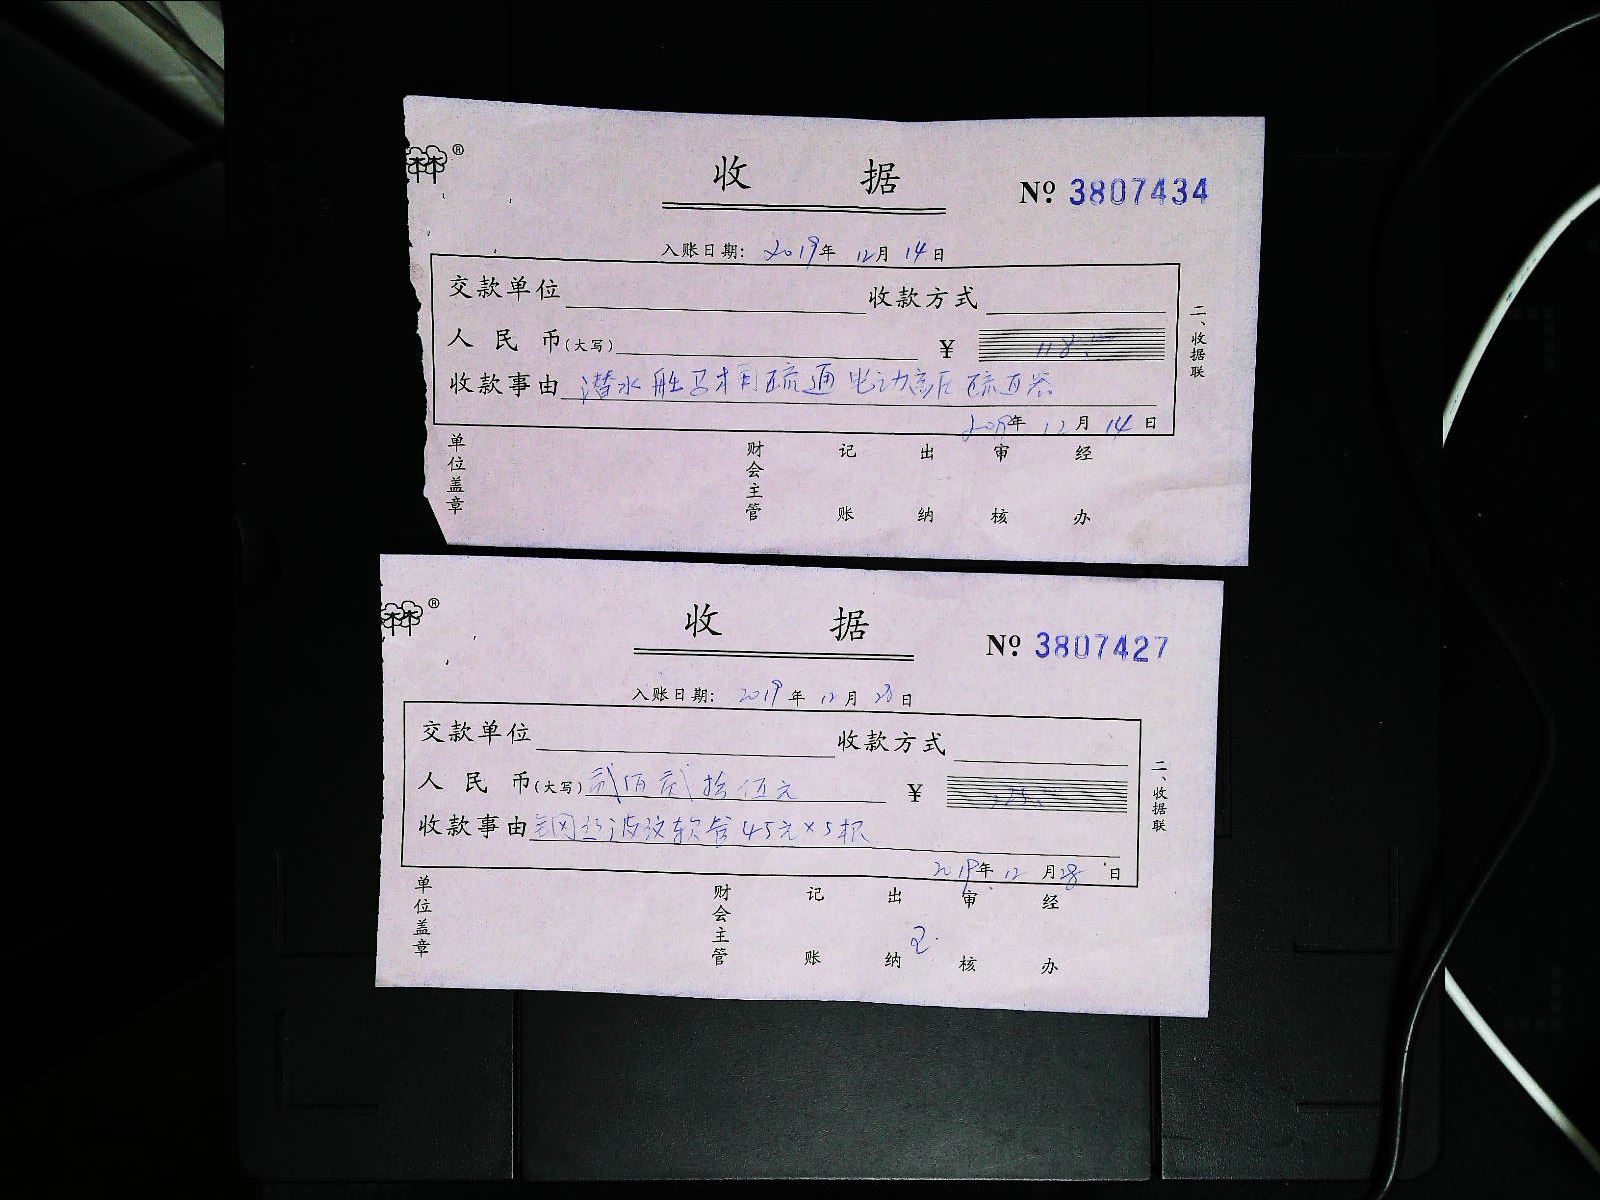 ®
收 据
№ 3807434
入账日期: 2019年 12月 14日
交款单位 收款方式
人 民 币(大写) ¥ 118.
收款事由 潜水 马桶疏通 电动高压疏通器
2019年 12月 14日
二、收据联
单位盖章 财会主管 记账 出纳 审核 经办
®
收 据
№ 3807427
入账日期: 2019年 12月 28日
交款单位 收款方式
人 民 币(大写) 贰佰贰拾伍元 ¥ 225.
收款事由 钢丝波纹软管 45元×5根
2019年 12月 28日
二、收据联
单位盖章 财会主管 记账 出纳 审核 经办